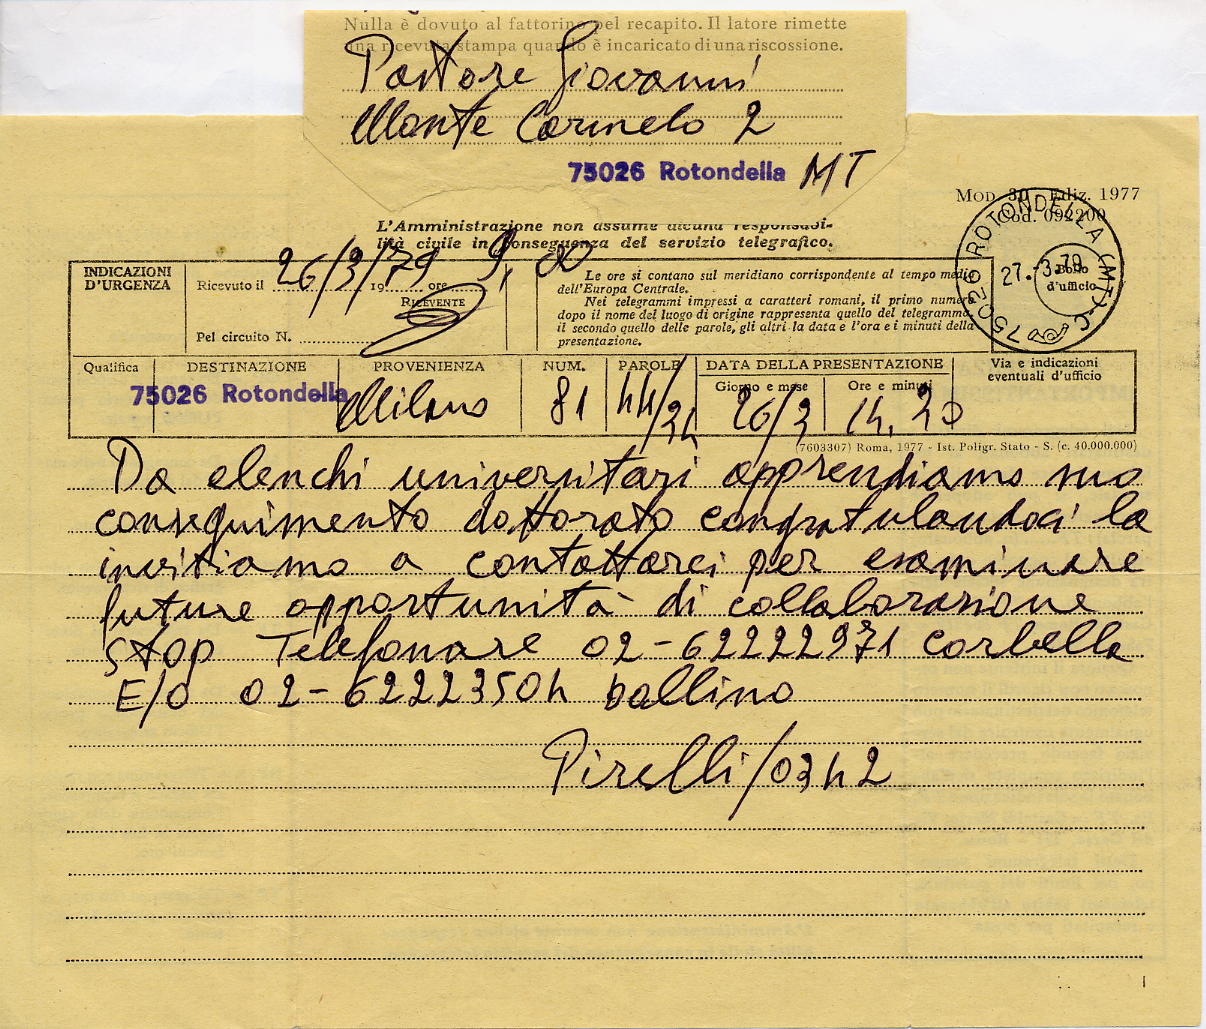 Nulla è dovuto al fattorino pel recapito. Il latore rimette
una ricevuta stampa quando è incaricato di una riscossione.
Pastore Giovanni
Monte Carmelo 2
75026 Rotondella MT
Mod. 30 Ediz. 1977
Cod. 092200
L'Amministrazione non assume alcuna responsabi-
lità civile in conseguenza del servizio telegrafico.
75026 ROTONDELLA (MT)-C
27.-3.79
Bollo
d'ufficio
INDICAZIONI
D'URGENZA
Ricevuto il 26/3/79 19 ore 9,00
RICEVENTE
Pel circuito N.
Le ore si contano sul meridiano corrispondente al tempo medio
dell'Europa Centrale.
Nei telegrammi impressi a caratteri romani, il primo numero
dopo il nome del luogo di origine rappresenta quello del telegramma,
il secondo quello delle parole, gli altri la data e l'ora e i minuti della
presentazione.
Qualifica DESTINAZIONE PROVENIENZA NUM. PAROLE DATA DELLA PRESENTAZIONE Via e indicazioni
eventuali d'ufficio
Giorno e mese Ore e minuti
75026 Rotondella Milano 81 44/24 26/3 14.20
(7603307) Roma, 1977 - Ist. Poligr. Stato - S. (c. 40.000.000)
Da elenchi universitari apprendiamo suo
conseguimento dottorato congratulandoci la
invitiamo a contattarci per esaminare
future opportunità di collaborazione
STOP Telefonare 02-62222971 Corbella
E/O 02-62223504 ballino
Pirelli/0342